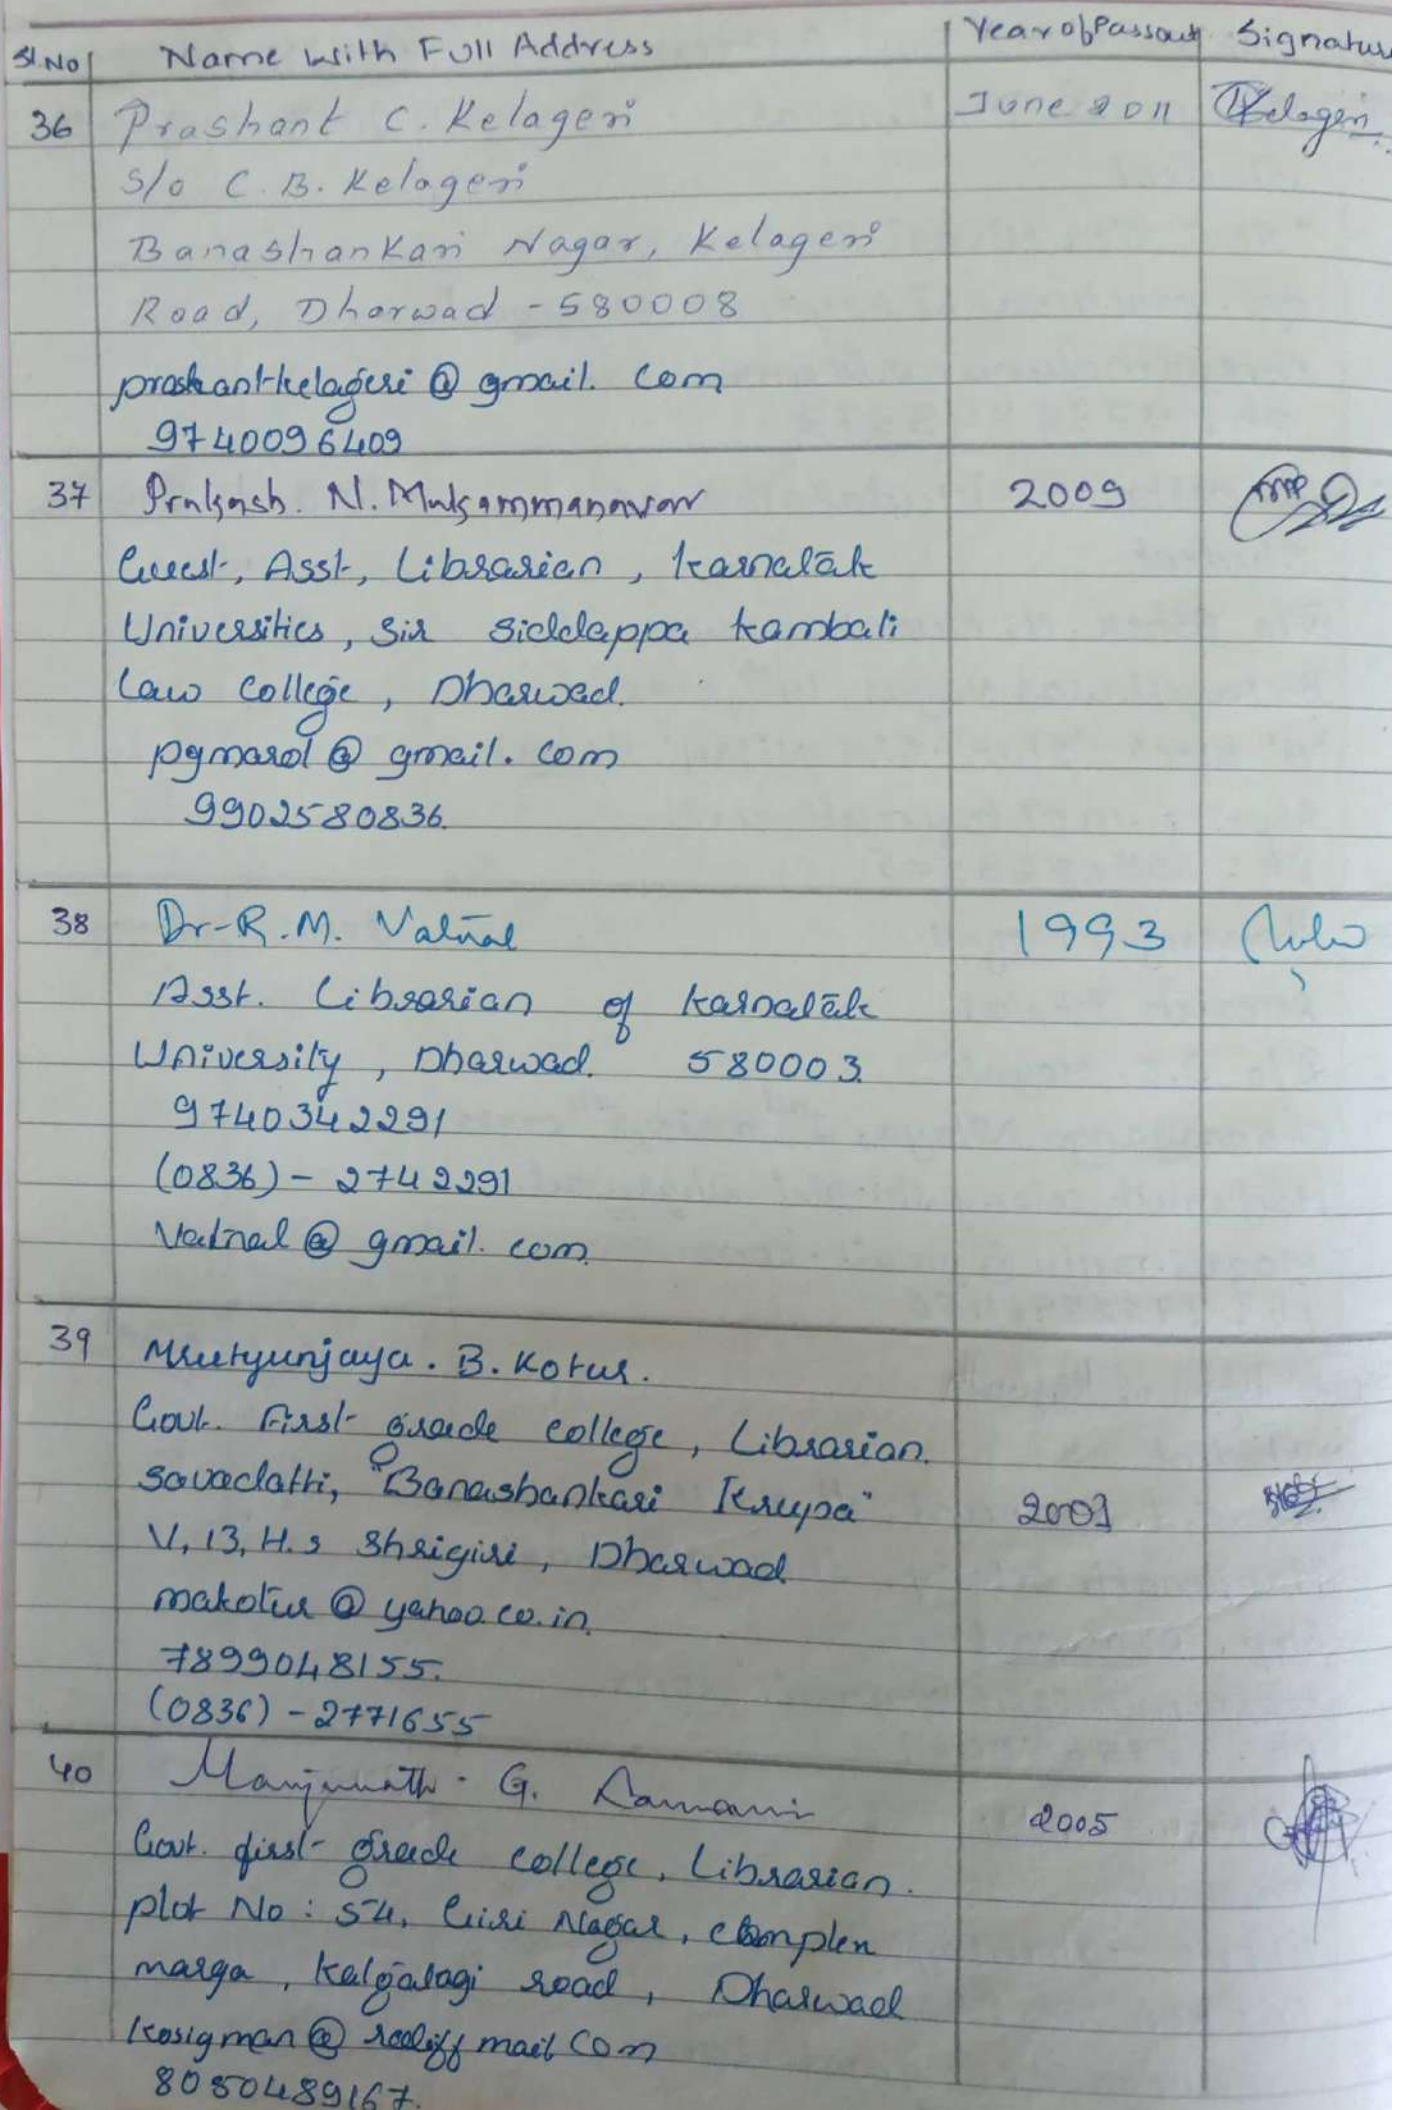 Sl.No Name with Full Address Year of Passout Signature
36 Prashant C. Kelageri June 2011 Kelageri
S/o C.B. Kelageri
Banashankari Nagar, Kelageri
Road, Dharwad - 580008
prashantkelageri@gmail.com
9740096409
37 Prakash. N. Mukammanavar 2009
Guest, Asst, Librarian, Karnatak
Universities, Sir Siddappa Kambali
Law College, Dharwad.
pgmarol@gmail.com
9902580836.
38 Dr-R.M. Vatnal 1993
Asst. Librarian of Karnatak
University, Dharwad. 580003.
9740342291
(0836)-2742291
Vatnal@gmail.com.
39 Mrutyunjaya. B. Kotur.
Govt. First grade college, Librarian.
Savadatti, "Banashankari Krupa"
V, 13, H.s Shrigiri, Dharwad 2003
makotur@yahoo.co.in.
7899048155.
(0836)-2771655
40 Manjunath. G. 2005
Govt. first grade college, Librarian.
plot No: 54, Giri Nagar, complex
marga, Kalgalagi road, Dharwad
kosigman@rediffmail com
8050489167.